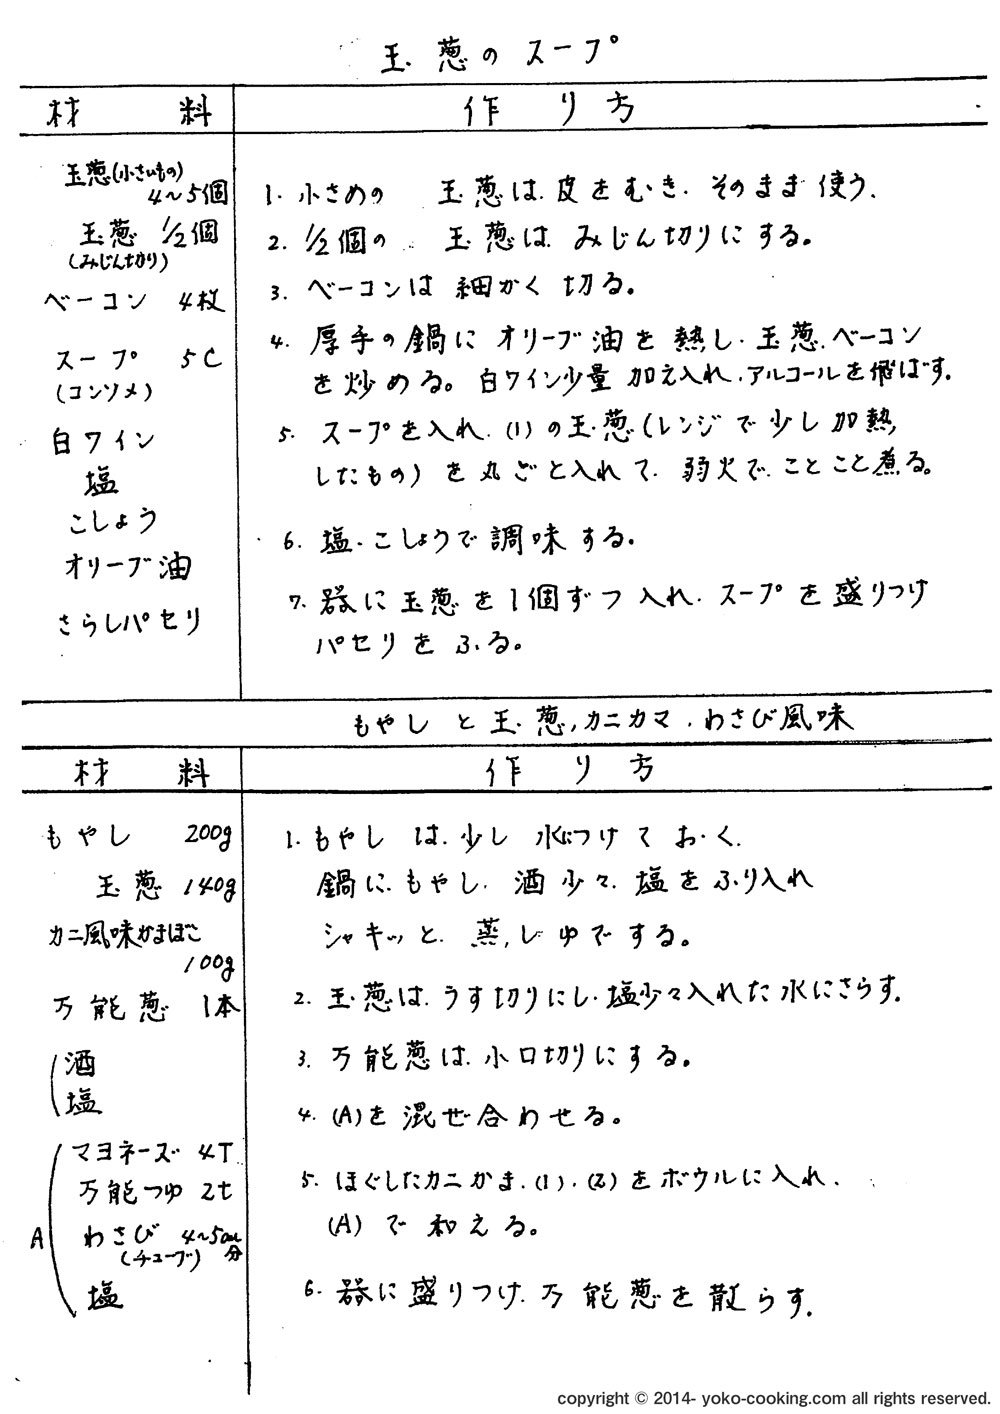 玉葱のスープ
材料 作り方
玉葱(小さいもの)
4〜5個
玉葱 1/2個
(みじん切り)
ベーコン 4枚
スープ 5C
(コンソメ)
白ワイン
塩
こしょう
オリーブ油
さらしパセリ
1. 小さめの 玉葱は、皮をむき、そのまま使う。
2. 1/2個の 玉葱は、みじん切りにする。
3. ベーコンは細かく切る。
4. 厚手の鍋にオリーブ油を熱し、玉葱、ベーコン
を炒める。白ワイン少量加え入れ、アルコールを飛ばす。
5. スープを入れ、(1)の玉葱(レンジで少し加熱
したもの)を丸ごと入れて、弱火で、ことこと煮る。
6. 塩、こしょうで調味する。
7. 器に玉葱を1個ずつ入れ、スープを盛りつけ
パセリをふる。
もやしと玉葱、カニカマ、わさび風味
材料 作り方
もやし 200g
玉葱 140g
カニ風味かまぼこ
100g
万能葱 1本
酒
塩
A
マヨネーズ 4T
万能つゆ 2t
わさび 4〜5cm分
(チューブ)
塩
1. もやしは、少し水につけておく。
鍋に、もやし、酒少々、塩をふり入れ
シャキッと、蒸しゆでする。
2. 玉葱は、うす切りにし、塩少々入れた水にさらす。
3. 万能葱は、小口切りにする。
4. (A)を混ぜ合わせる。
5. ほぐしたカニかま、(1)、(2)をボウルに入れ、
(A)で和える。
6. 器に盛りつけ、万能葱を散らす。
copyright © 2014- yoko-cooking.com all rights reserved.